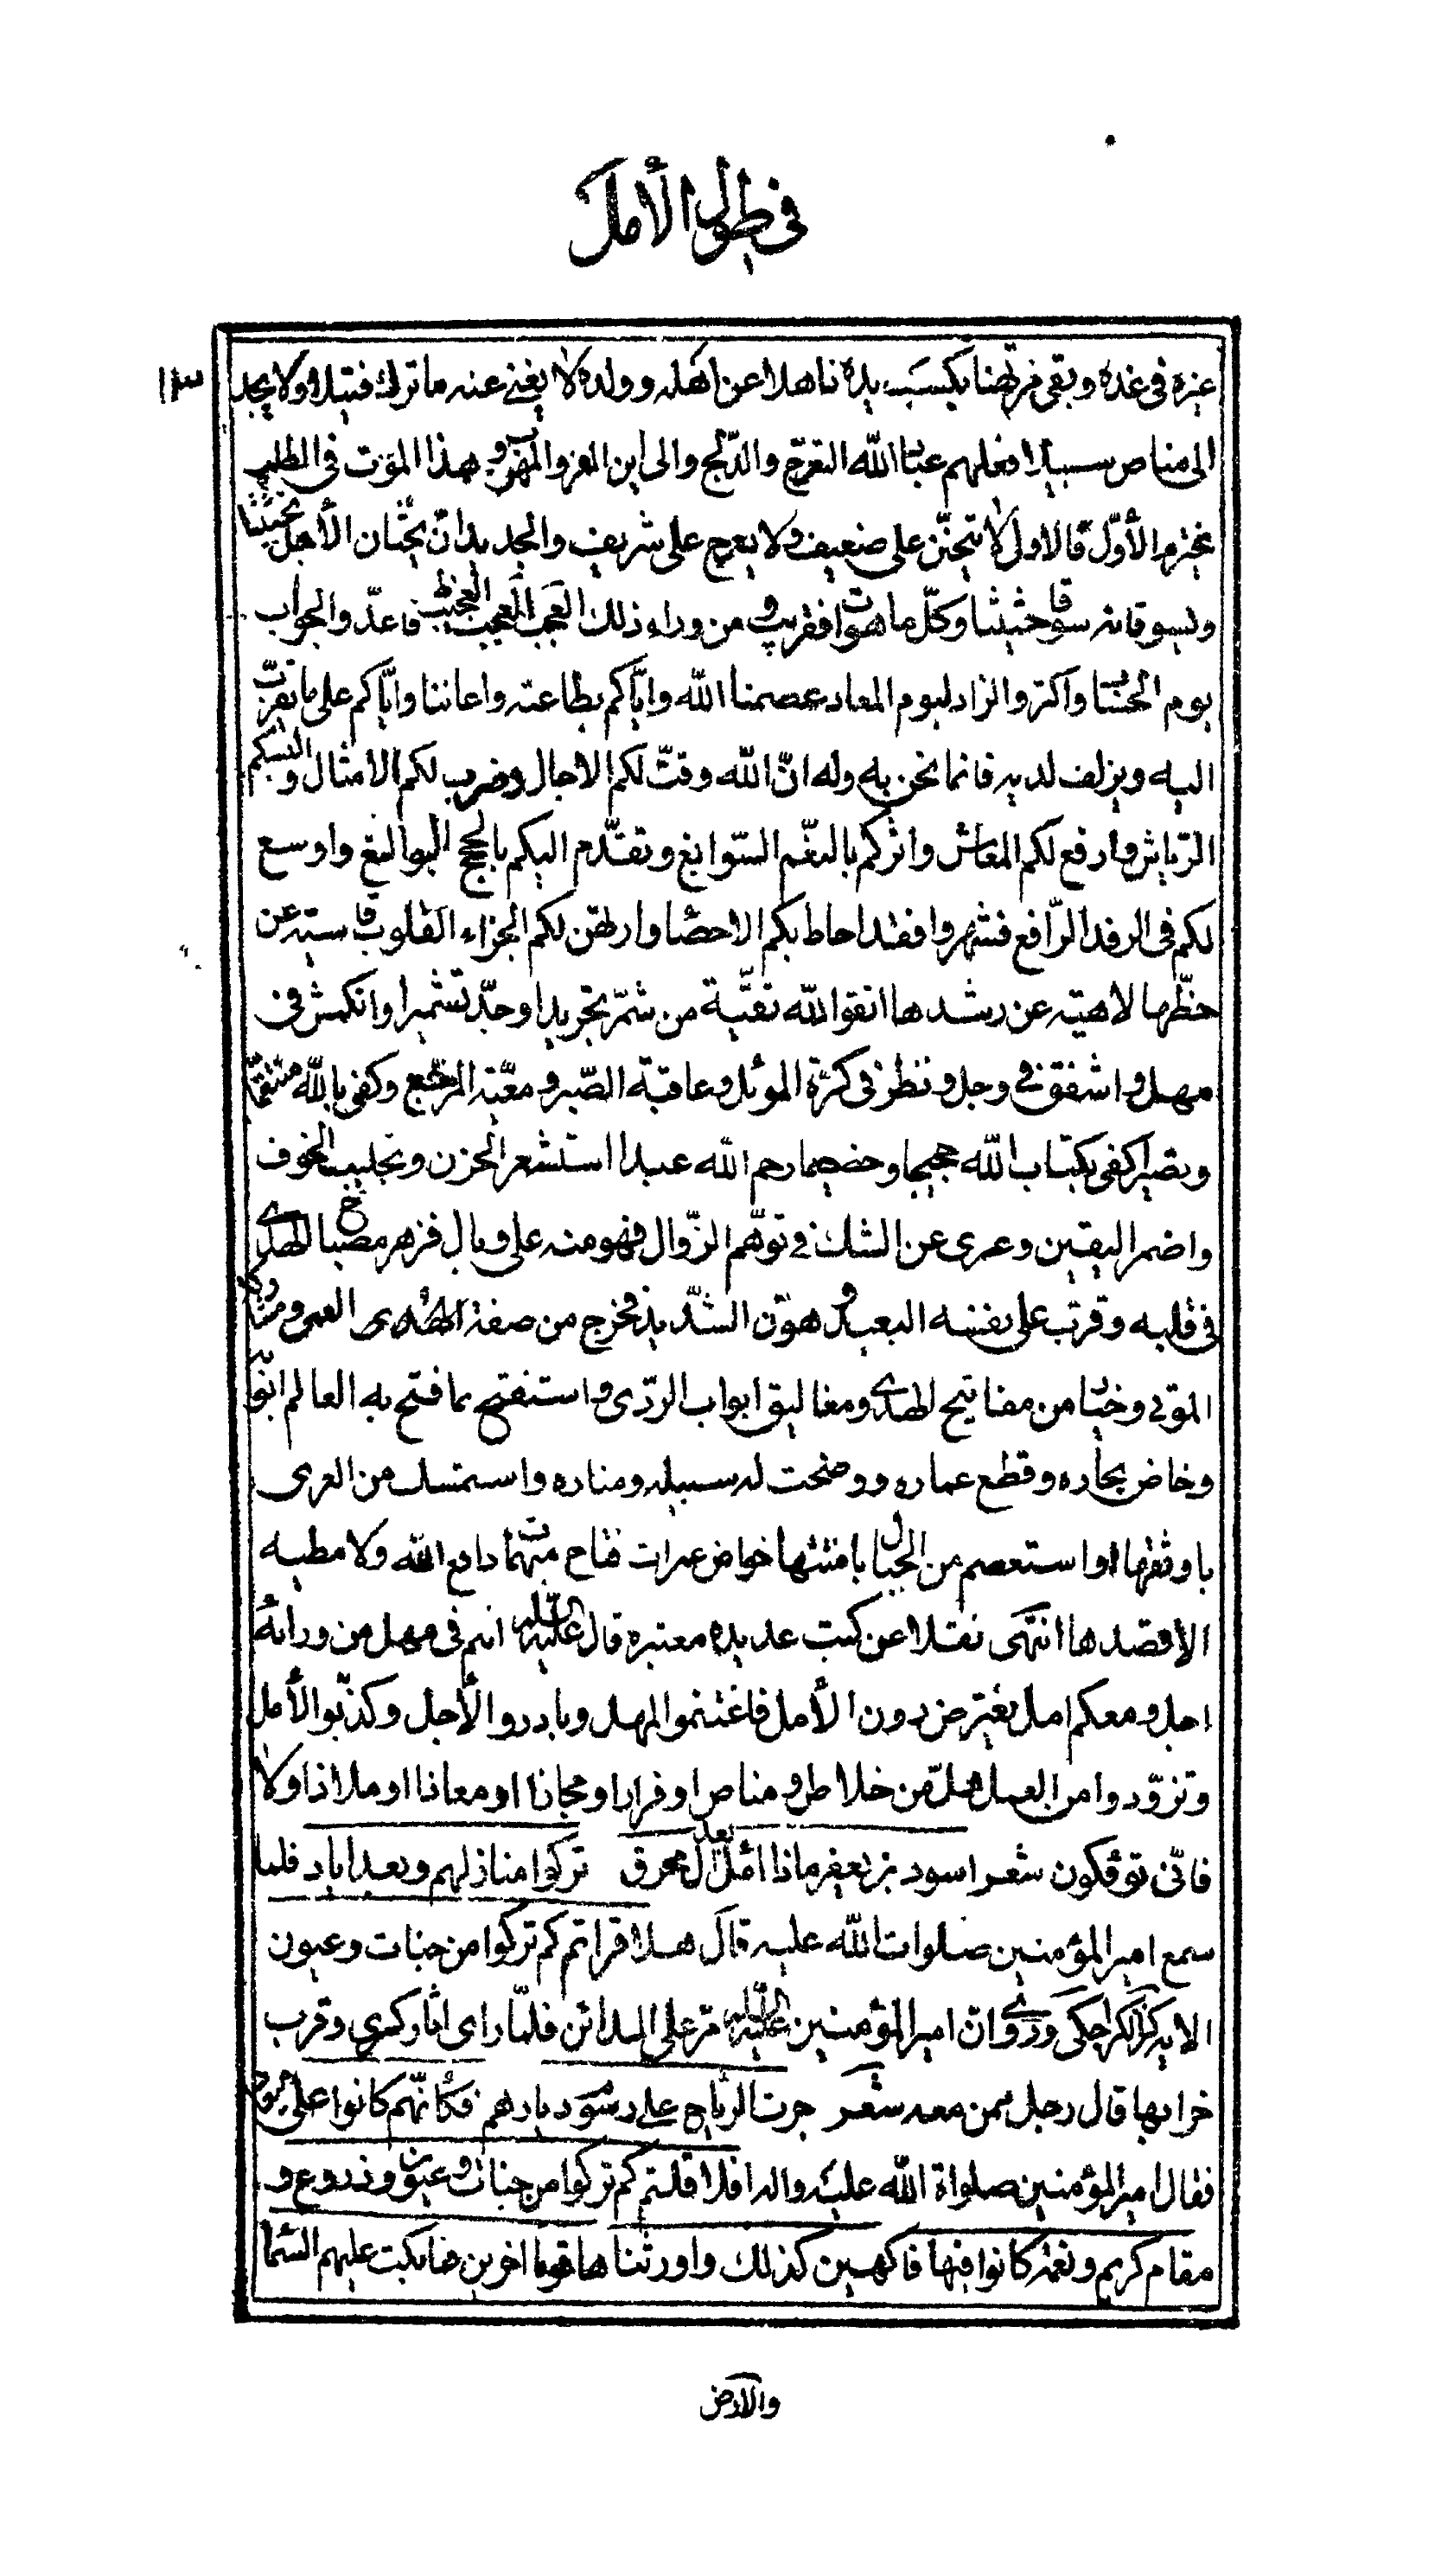 في طول الأمل
١٣
غيره في غده وبقي مرتهنا بكسب يده ناهلا عن اهله وولده لا يغني عنه ما ترك فتيلا ولا يجد
الى مناص سبيلا فعليهم عباد الله التعرج والدلج والى اين المفر والمهرب وهذا الموت في الطلب
يخترم الأول فالاول لا يتحنن على ضعيف ولا يعرج على شريف والجديدان يحثان الأجل تحثيثا
ويسوقانه سوقا حثيثا وكل ما هو ات فقريب ومن وراء ذلك العجب العجيب فاعدوا الجواب
يوم الحساب واكثروا الزاد ليوم المعاد عصمنا الله واياكم بطاعته واعاننا واياكم على ما يقرب
اليه ويزلف لديه فانما نحن به وله ان الله وقت لكم الاجال وضرب لكم الامثال والبسكم
الرياش وارفع لكم المعاش واثركم بالنعم السوابغ وتقدم اليكم بالحجج البوالغ واوسع
لكم في الرفد الرافع فشمروا فقد احاط بكم الاحصاء وارتهن لكم الجزاء القلوب قاسية عن
حظها لاهية عن رشدها اتقوا الله تقية من شمر تجريدا وجد تشميرا وانكمش في
مهل واشفق في وجل ونظر في كرة الموئل وعاقبة الصبر ومغبة المرجع وكفى بالله منتقما
ونصيرا كفى بكتاب الله حجيجا وخصيما رحم الله عبدا استشعر الحزن وتجلبب الخوف
واضمر اليقين وعرى عن الشك في توهم الزوال فهو منه على وبال فزهر مصباح الهدى
في قلبه وقرب على نفسه البعيد وهون الشديد فخرج من صفة العمى ومشاركة
الموتى وخبا من مفاتيح الهدى ومغاليق ابواب الردى واستفتح بما فتح به العالم ابوابه
وخاض بحاره وقطع غماره ووضحت له سبيله ومناره واستمسك من العرى
باوثقها واستعصم من الحبال بامتنها خواض غمرات فتاح مبهمات دافع الله ولا مطيه
الا قصدها انتهى نقلا عن كتب عديده معتبره قال عليه السلام انتم في مهل من ورائه
اجل ومعكم امل يعترض دون الأمل فاغتنموا المهل وبادروا الأجل وكذبوا الأمل
وتزودوا من العمل هل من خلاص او مناص او فرار او مجاز او معاذ او ملاذ او لا
فانى تؤفكون شعر اسود بن يعفر ماذا اؤمل بعد ال محرق تركوا منازلهم وبعد اياد فلما
سمع امير المؤمنين صلوات الله عليه قال هلا قراتم كم تركوا من جنات وعيون
الايه كنز الكراجكي وروى ان امير المؤمنين عليه السلام مر على المدائن فلما راى اثار كسرى وقرب
خرابها قال رجل ممن معه شعر جرت الرياح على رسوم ديارهم فكانهم كانوا على ميعاد
فقال امير المؤمنين صلواة الله عليه واله افلا قلتم كم تركوا من جنات وعيون وزروع و
مقام كريم ونعمة كانوا فيها فاكهين كذلك واورثناها قوما اخرين فما بكت عليهم السماء
والارض